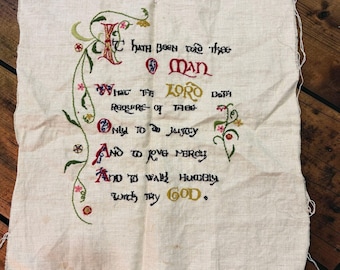 It hath been told thee
O MAN
What the LORD doth
require of thee
Only to do justly
And to love mercy
And to walk humbly
with thy GOD.